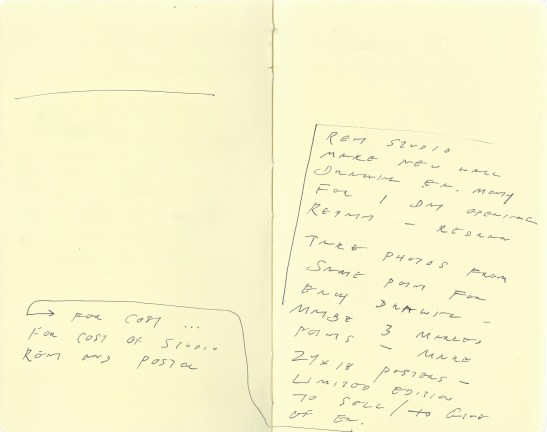 RENT STUDIO
MAKE NEW WALL
DRAWING EA. MONTH
FOR 1 DAY OPENING
REPAINT – REDRAW
TAKE PHOTOS FROM
SAME POINT FOR
EACH DRAWING –
MAYBE 3 MARKED
POINTS – MAKE
24x18 POSTERS –
LIMITED EDITION
TO SELL / TO GIVE
OF EA.
→ FOR COST ...
FOR COST OF STUDIO
RENT AND POSTER